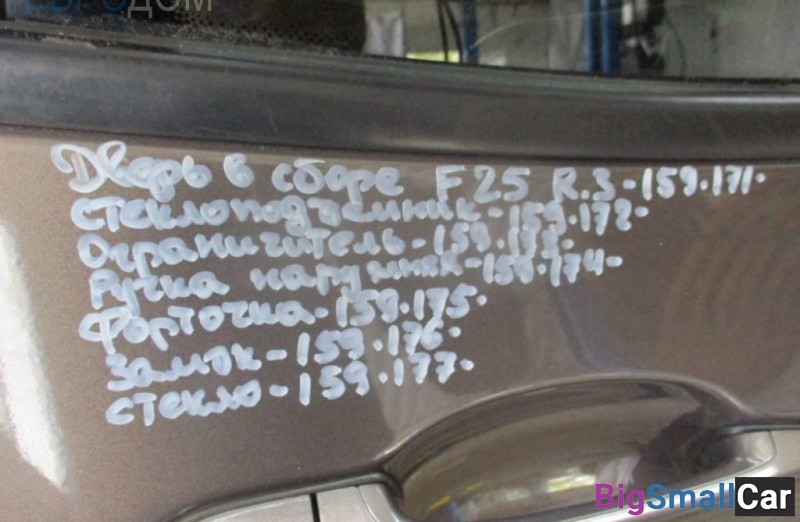 ЕВРОДОМ
Дверь в сборе F25 R.3-159.171.
стеклоподъемник-159.172-
Ограничитель-159.173.
Ручка наружняя-159.174-
Форточка-159.175.
Замок-159.176.
стекло-159.177.
BigSmallCar